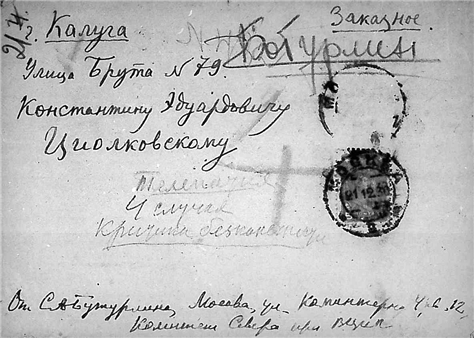 21/XII
Заказное.
г. Калуга
Бутурлин
Улица Брута N 79.
Константину Эдуардовичу
Циолковскому
МОСКВА
21.12
Телепатия
4 случая
Критика
От С.А. Бутурлина, Москва, ул. Коминтерна
Комитет Севера при ВЦИК